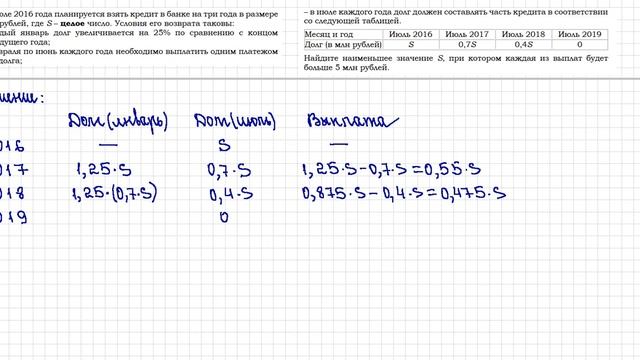 оле 2016 года планируется взять кредит в банке на три года в размере
рублей, где S – целое число. Условия его возврата таковы:
дый январь долг увеличивается на 25% по сравнению с концом
дущего года;
враля по июнь каждого года необходимо выплатить одним платежом
долга;
– в июле каждого года долг должен составлять часть кредита в соответствии
со следующей таблицей.
Месяц и год Июль 2016 Июль 2017 Июль 2018 Июль 2019
Долг (в млн рублей) S 0,7S 0,4S 0
Найдите наименьшее значение S, при котором каждая из выплат будет
больше 5 млн рублей.
шение:
Долг (январь) Долг (июль) Выплата
016 — S —
017 1,25·S 0,7·S 1,25·S-0,7·S=0,55·S
018 1,25·(0,7·S) 0,4·S 0,875·S-0,4·S=0,475·S
019 0